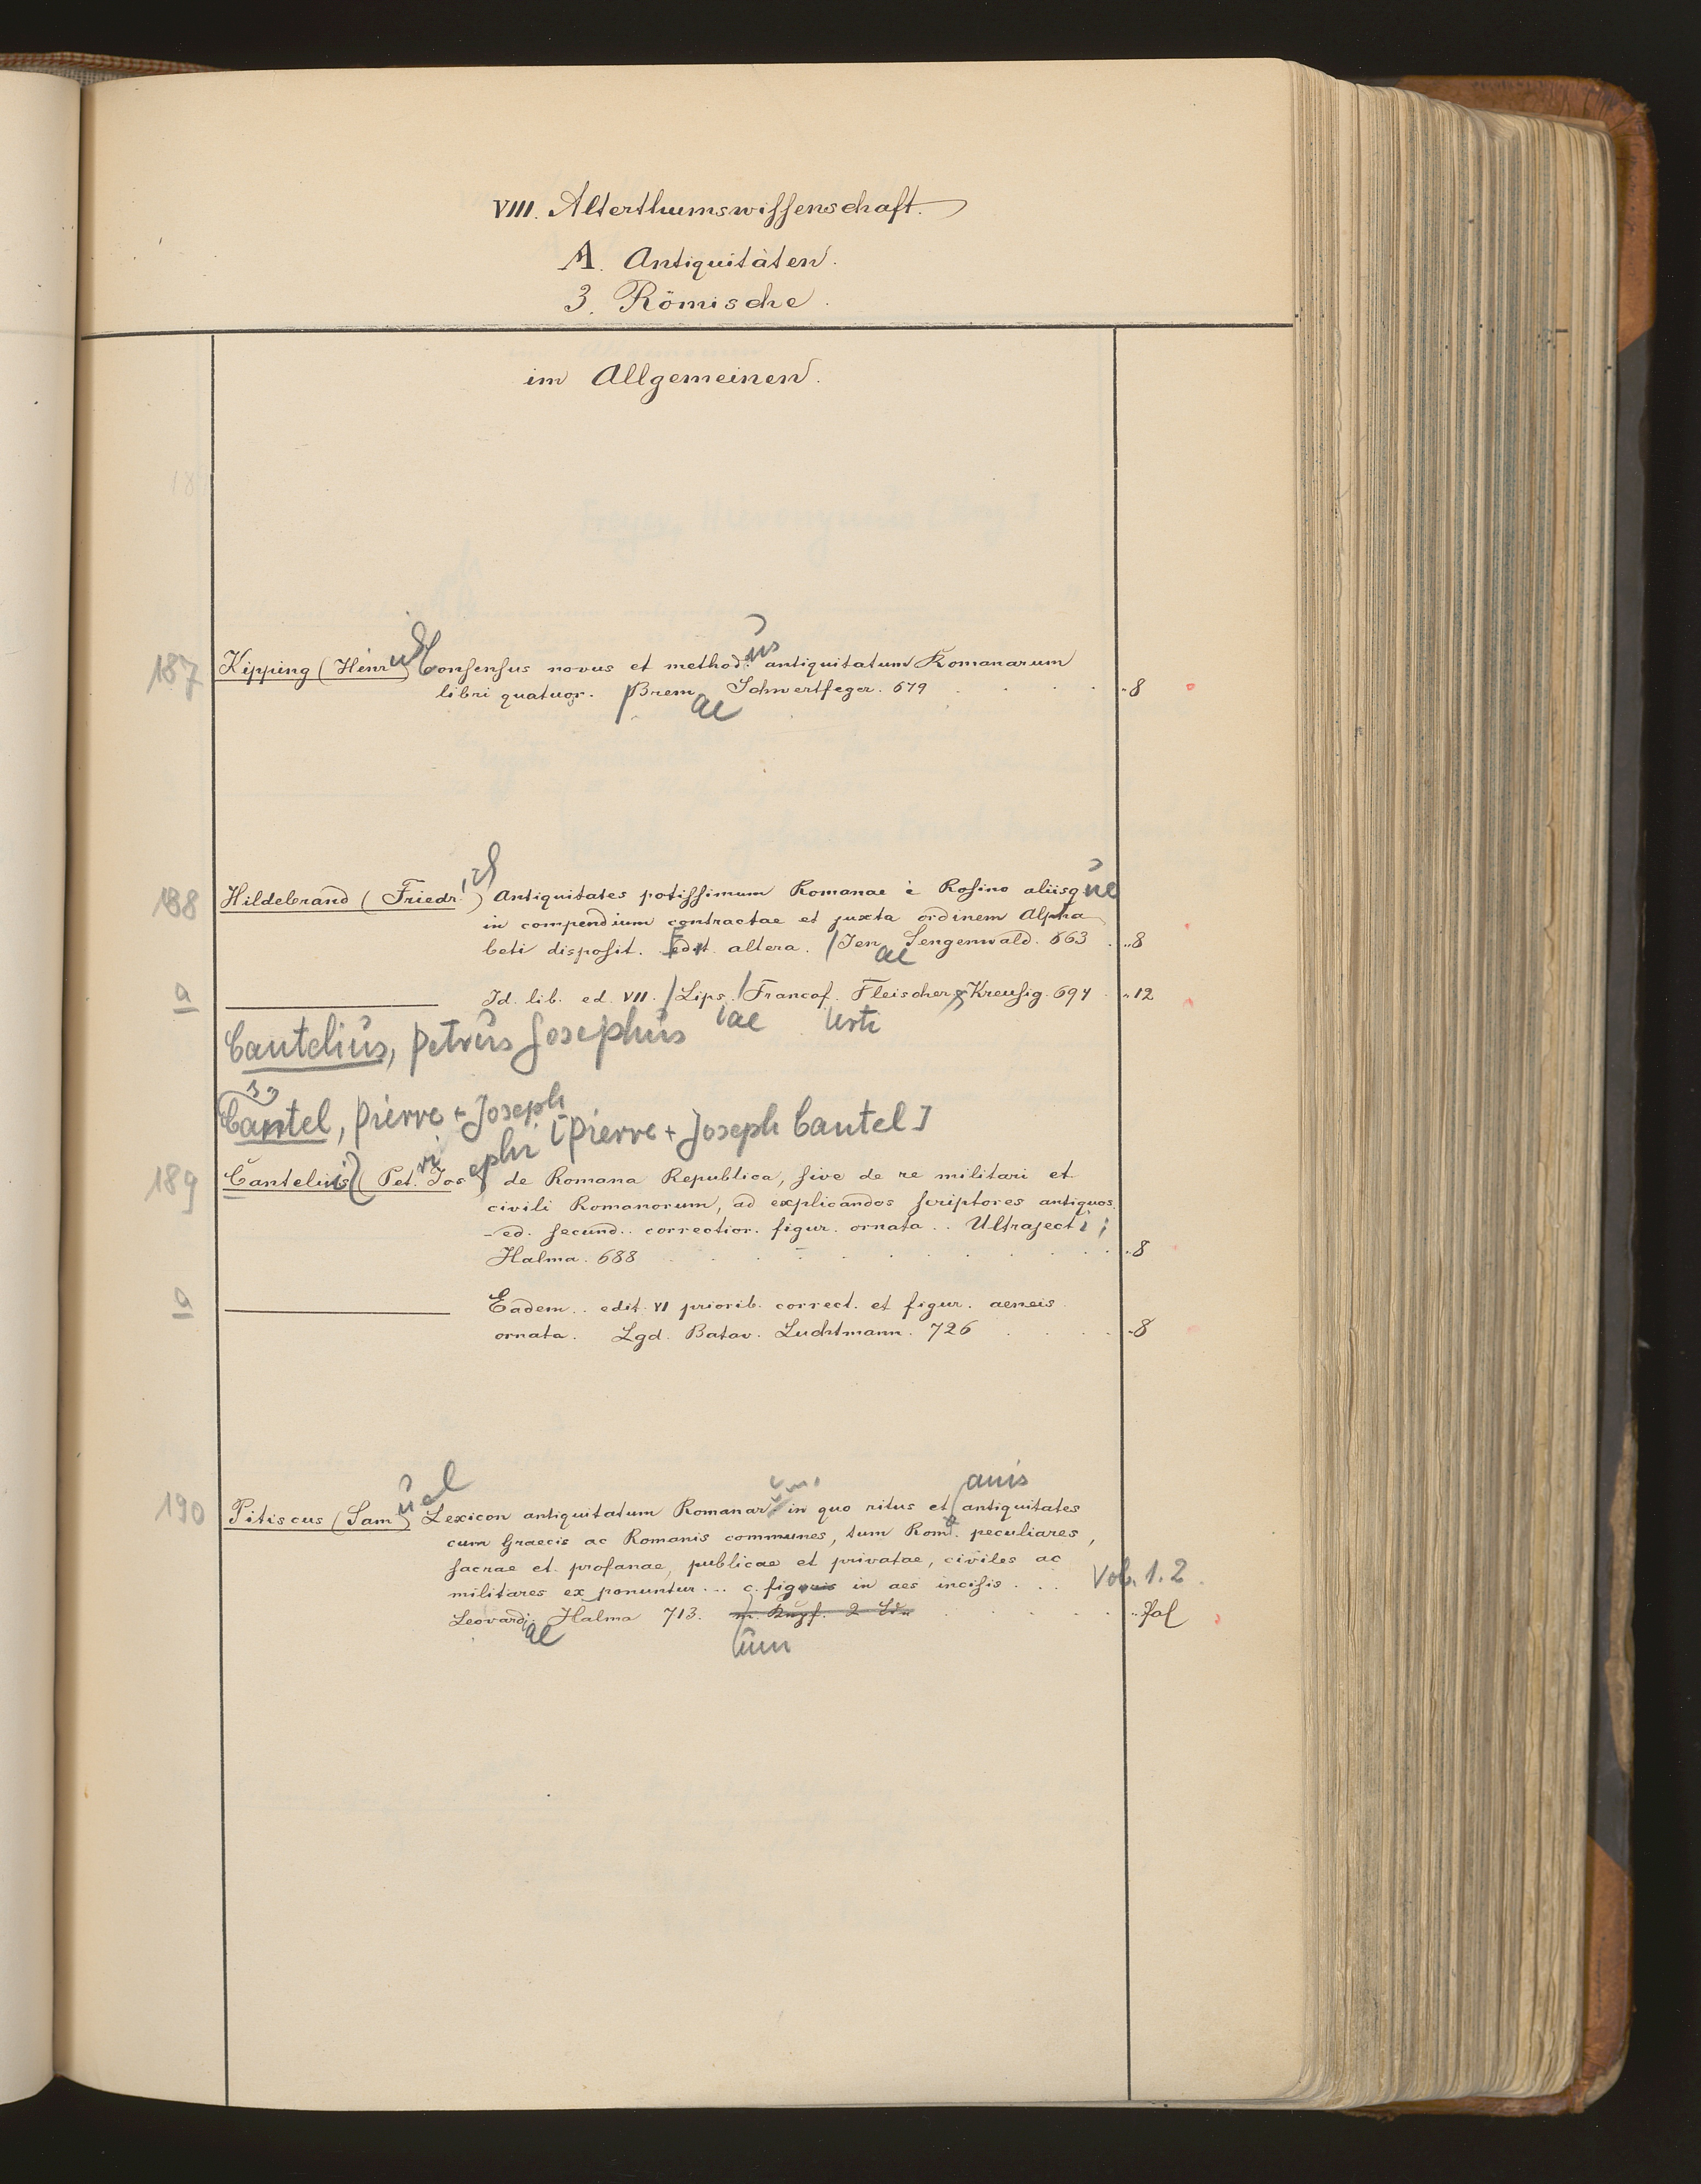 VIII. Alterthumswissenschaft.
A. Antiquitäten.
3. Römische.
im Allgemeinen.
187 Kipping (Heinrich) Consensus novus et methodus antiquitatum Romanarum
libri quatuor. Bremae Schwertfeger. 679 . . . . 8
188 Hildebrand (Friedrich) Antiquitates potissimum Romanae è Rosino aliisque
in compendium contractae et juxta ordinem Alpha
beti disposit. Edit. altera. Jenae Sengenwald. 663 . 8
a Id. lib. ed. VII. Lipsiae Francofurti Fleischer & Kreusig. 694 . 12
Cantelius, Petrus Josephus
Cantel, Pierre + Joseph
[Pierre + Joseph Cantel]
189 Cantelii (Petri Josephi de Romana Republica, sive de re militari et
civili Romanorum, ad explicandos scriptores antiquos.
ed. secund. correctior. figur. ornata. . Ultrajecti;
Halma. 688 . . . . . 8
a Eadem. . edit. VI priorib. correct. et figur. aeneis
ornata. Lgd. Batav. Luchtmann. 726 . . . 8
190 Pitiscus (Samuel) Lexicon antiquitatum Romanarum in quo ritus et antiquitates
cum Graecis ac Romanis communes, tum Romanis peculiares,
sacrae et profanae, publicae et privatae, civiles ac
militares ex ponuntur... c. figuris in aes incisis . . . Vol. 1. 2.
Leovardiae Halma 713. m. Kupf. 2 Bde . . . . Fol
um